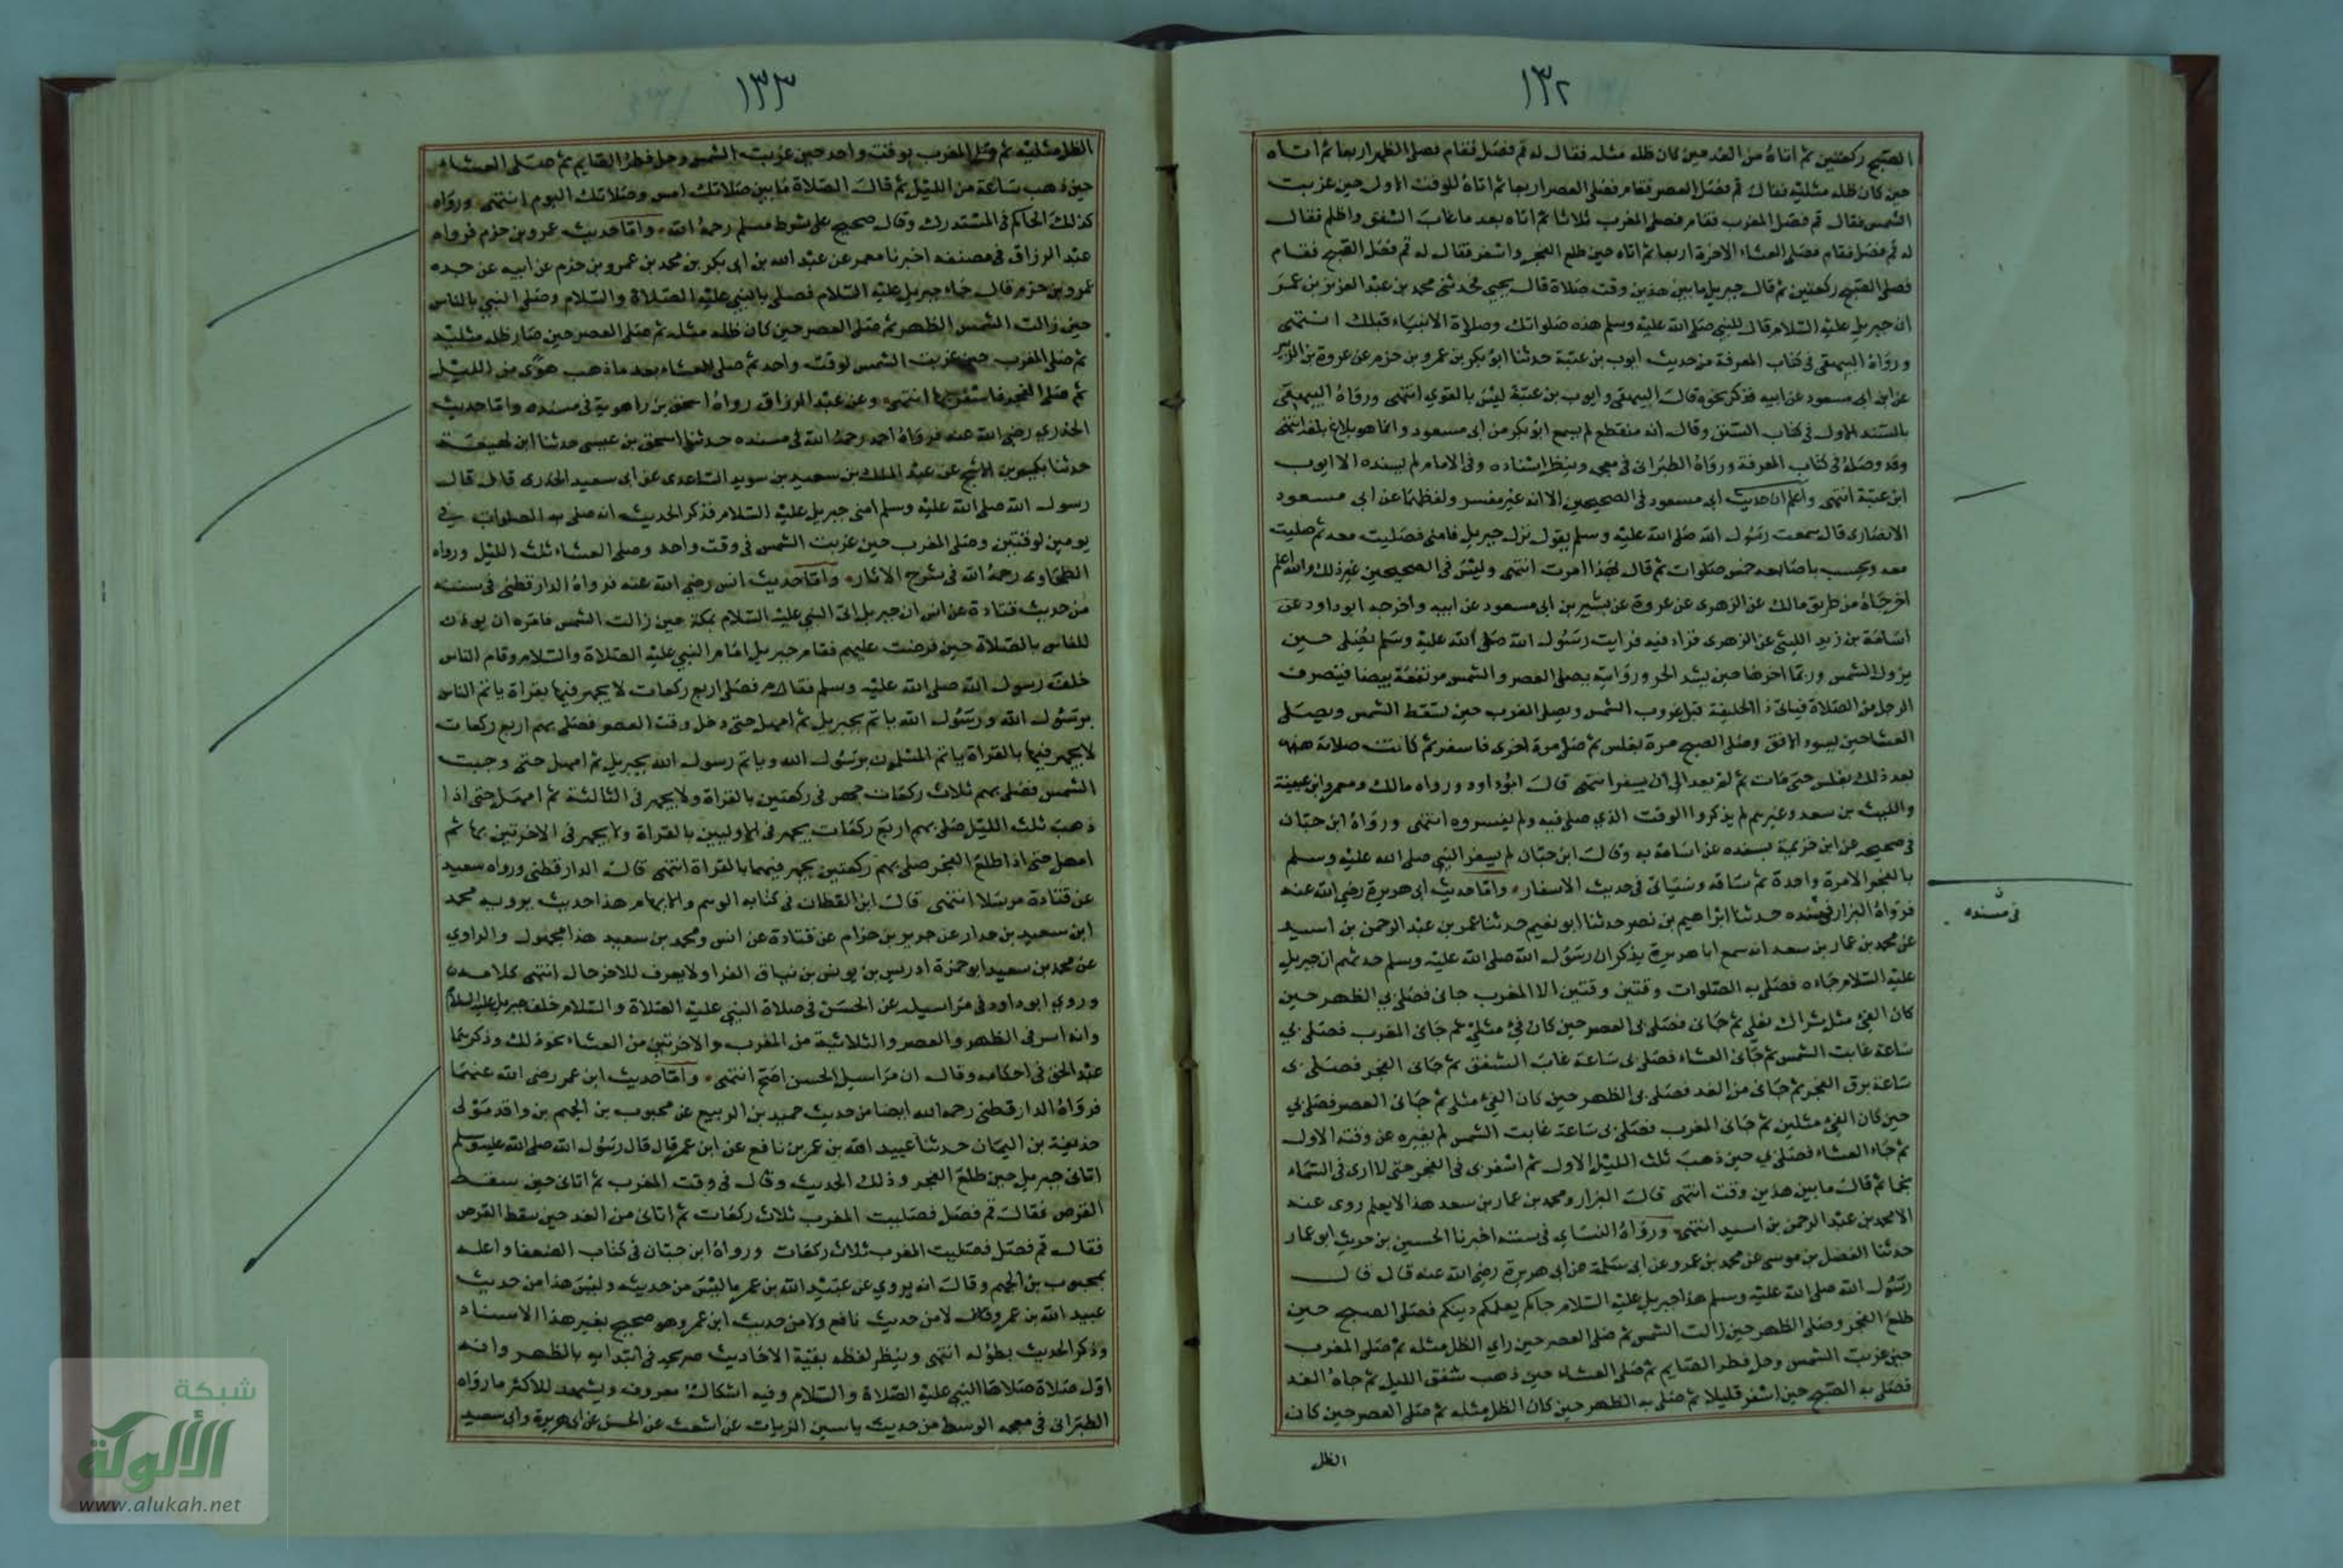 ١٣٢
الصبح ركعتين ثم اتاه من الغد حين كان ظله مثله فقال له قم فصل فقام فصلى الظهر اربعا ثم اتاه
حين كان ظله مثليه فقال قم فصل العصر فقام فصلى العصر اربعا ثم اتاه للوقت الاول حين غربت
الشمس فقال قم فصل المغرب فقام فصلى المغرب ثلاثا ثم اتاه بعد ما غاب الشفق واظلم فقال
له قم فصل فقام فصلى العشاء الاخرة اربعا ثم اتاه حين طلع الفجر واسفر فقال له قم فصل الصبح فقام
فصلى الصبح ركعتين ثم قال جبريل ما بين هذين وقت صلاة قال يحيى فحدثني محمد بن عبد العزيز بن عمر
ان جبريل عليه السلام قال للنبي صلى الله عليه وسلم هذه صلواتك وصلاة الانبياء قبلك انتهى
ورواه البيهقي في كتاب المعرفة من حديث ايوب بن عتبة حدثنا ابو بكر بن عمرو بن حزم عن عروة بن الزبير
عن ابن ابي مسعود عن ابيه فذكر نحوه قال البيهقي وايوب بن عتبة ليس بالقوي انتهى ورواه البيهقي
بالسند الاول في كتاب السنن وقال انه منقطع لم يسمع ابو بكر من ابي مسعود وانما هو بلاغ بلغه انتهى
وقد وصله في كتاب المعرفة ورواه الطبراني في معجمه وينظر اسناده وفي الامام لم يسنده الا ايوب
ابن عتبة انتهى واعلم ان حديث ابي مسعود في الصحيحين الا انه غير مفسر ولفظهما عن ابي مسعود
الانصاري قال سمعت رسول الله صلى الله عليه وسلم يقول نزل جبريل فامني فصليت معه ثم صليت
معه ويحسب باصابعه خمس صلوات ثم قال بهذا امرت انتهى وليس في الصحيحين غير ذلك والله اعلم
اخرجاه من طريق مالك عن الزهري عن عروة عن بشير بن ابي مسعود عن ابيه واخرجه ابو داود عن
اسامة بن زيد الليثي عن الزهري فزاد فيه فرايت رسول الله صلى الله عليه وسلم يصلي حين
يزول الشمس وربما اخرها حين يشتد الحر ورايته يصلي العصر والشمس مرتفعة بيضا فينصرف
الرجل من الصلاة فياتي ذا الحليفة قبل غروب الشمس ويصلي المغرب حين تسقط الشمس ويصلي
العشا حين يسود الافق وصلى الصبح مرة بغلس ثم صلى مرة اخرى فاسفر ثم كانت صلاته
بعد ذلك بغلس حتى مات ثم لم يعد الى ان يسفر انتهى قال ابو داود ورواه مالك ومعمر وابن عيينة
والليث بن سعد وغيرهم لم يذكروا الوقت الذي صلى فيه ولم يفسروه انتهى ورواه ابن حبان
في صحيحه عن ابن خزيمة بسنده عن اسامة به وقال ابن حبان لم يسفر النبي صلى الله عليه وسلم
بالفجر الا مرة واحدة ثم ساقه وسياتي في حديث الاسفار واما حديث ابي هريرة رضي الله عنه
فرواه البزار في مسنده حدثنا ابراهيم بن نصر حدثنا ابو نعيم حدثنا عمر بن عبد الرحمن بن اسيد
في مسنده
عن محمد بن عمار بن سعد انه سمع ابا هريرة يذكر ان رسول الله صلى الله عليه وسلم حدثهم ان جبريل
عليه السلام جاءه فصلى به الصلوات وقتين وقتين الا المغرب جاني فصلى بي الظهر حين
كان الفئ مثل شراك نعلي ثم جاني فصلى بي العصر حين كان فئ مثلي ثم جاني المغرب فصلى بي
ساعة غابت الشمس ثم جاني العشاء فصلى بي ساعة غاب الشفق ثم جاني الفجر فصلى بي
ساعة برق الفجر ثم جاني من الغد فصلى بي الظهر حين كان الفئ مثلي ثم جاني العصر فصلى بي
حين كان الفئ مثلين ثم جاني المغرب فصلى بي ساعة غابت الشمس لم يغيره عن وقته الاول
ثم جاء العشاء فصلى بي حين ذهب ثلث الليل الاول ثم اسفر بي في الفجر حتى لا ارى في السماء
نجما ثم قال ما بين هذين وقت انتهى قال البزار ومحمد بن عمار بن سعد هذا لا يعلم روى عنه
الا محمد بن عبد الرحمن بن اسيد انتهى ورواه النساي في سننه اخبرنا الحسين بن حريث ابو عمار
حدثنا الفضل بن موسى عن محمد بن عمرو عن ابي سلمة عن ابي هريرة رضي الله عنه قال قال
رسول الله صلى الله عليه وسلم هذا جبريل عليه السلام جاكم يعلمكم دينكم فصلى الصبح حين
طلع الفجر وصلى الظهر حين زالت الشمس ثم صلى العصر حين راي الظل مثله ثم صلى المغرب
حين غربت الشمس وحل فطر الصايم ثم صلى العشاء حين ذهب شفق الليل ثم جاه الغد
فصلى به الصبح حين اسفر قليلا ثم صلى به الظهر حين كان الظل مثله ثم صلى العصر حين كان
الظل
١٣٣
الظل مثليه ثم صلى المغرب بوقت واحد حين غربت الشمس وحل فطر الصايم ثم صلى العشاء
حين ذهب ساعة من الليل ثم قال الصلاة ما بين صلاتك امس وصلاتك اليوم انتهى ورواه
كذلك الحاكم في المستدرك وقال صحيح على شرط مسلم رحمه الله واما حديث عمرو بن حزم فرواه
عبد الرزاق في مصنفه اخبرنا معمر عن عبد الله بن ابي بكر بن محمد بن عمرو بن حزم عن ابيه عن جده
عمرو بن حزم قال جاء جبريل عليه السلام فصلى بالنبي عليه الصلاة والسلام وصلى النبي بالناس
حين زالت الشمس الظهر ثم صلى العصر حين كان ظله مثله ثم صلى العصر حين صار ظله مثليه
ثم صلى المغرب حين غربت الشمس لوقت واحد ثم صلى العشاء بعد ما ذهب هوي من الليل
ثم صلى الفجر فاسفر بها انتهى وعن عبد الرزاق رواه اسحق بن راهوية في مسنده واما حديث
الخدري رضي الله عنه فرواه احمد رحمه الله في مسنده حدثنا اسحق بن عيسى حدثنا ابن لهيعة
حدثنا بكير بن الاشج عن عبد الملك بن سعيد بن سويد الساعدي عن ابي سعيد الخدري قال قال
رسول الله صلى الله عليه وسلم امني جبريل عليه السلام فذكر الحديث انه صلى به الصلوات في
يومين لوقتين وصلى المغرب حين غربت الشمس في وقت واحد وصلى العشاء ثلث الليل ورواه
الطحاوي رحمه الله في شرح الاثار واما حديث انس رضي الله عنه فرواه الدارقطني في سننه
من حديث قتادة عن انس ان جبريل اتى النبي عليه السلام بمكة حين زالت الشمس فامره ان يوذن
للناس بالصلاة حين فرضت عليهم فقام جبريل امام النبي عليه الصلاة والسلام وقام الناس
خلف رسول الله صلى الله عليه وسلم فصلى اربع ركعات لا يجهر فيها بقراة ياتم الناس
برسول الله ورسول الله ياتم بجبريل ثم امهل حتى دخل وقت العصر فصلى بهم اربع ركعات
لا يجهر فيها بالقراة ياتم المسلمون برسول الله وياتم رسول الله بجبريل ثم امهل حتى وجبت
الشمس فصلى بهم ثلاث ركعات يجهر في ركعتين بالقراة ولا يجهر في الثالثة ثم امهل حتى اذا
ذهب ثلث الليل صلى بهم اربع ركعات يجهر في الاوليين بالقراة ولا يجهر في الاخرتين بها ثم
امهل حتى اذا طلع الفجر صلى بهم ركعتين يجهر فيهما بالقراة انتهى قال الدارقطني ورواه سعيد
عن قتادة مرسلا انتهى قال ابن القطان في كتابه الوهم والايهام هذا حديث يرويه محمد
ابن سعيد بن جدار عن جرير بن حازم عن قتادة عن انس ومحمد بن سعيد هذا مجهول والراوي
عن محمد بن سعيد ابو حمزة ادريس بن يونس بن يناق الفرا ولا يعرف للاخر حال انتهى كلامه
وروي ابو داود في مراسيله عن الحسن في صلاة النبي عليه الصلاة والسلام خلف جبريل عليه السلام
وانه اسر في الظهر والعصر والثلاثية من المغرب والاخرتين من العشاء نحو ذلك وذكرهما
عبد الحق في احكامه وقال ان مراسيل الحسن اصح انتهى واما حديث ابن عمر رضي الله عنهما
فرواه الدارقطني رحمه الله ايضا من حديث حميد بن الربيع عن محبوب بن الجهم بن واقد مولى
حذيفة بن اليمان حدثنا عبيد الله بن عمر بن نافع عن ابن عمر قال قال رسول الله صلى الله عليه وسلم
اتاني جبريل حين طلع الفجر وذلك الحديث وقال في وقت المغرب ثم اتاني حين سقط
القرص فقال قم فصل فصليت المغرب ثلاث ركعات ثم اتاني من الغد حين سقط القرص
فقال قم فصل فصليت المغرب ثلاث ركعات ورواه ابن حبان في كتاب الضعفا واعله
بمحبوب بن الجهم وقال انه يروي عن عبيد الله بن عمر ما ليس من حديثه وليس هذا من حديث
عبيد الله بن عمر ولا من حديث نافع ولا من حديث ابن عمر وهو صحيح بغير هذا الاسناد
وذكر الحديث بطوله انتهى وينظر لفظه بقية الاحاديث صريحه في ابتدايه بالظهر وانه
اول صلاة صلاها النبي عليه الصلاة والسلام وفيه اشكال معروف ويشهد للاكثر ما رواه
الطبراني في معجمه الوسط من حديث ياسين الزيات عن اشعث عن الحسن عن ابي هريرة وابي سعيد
شبكة
الألوكة
www.alukah.net